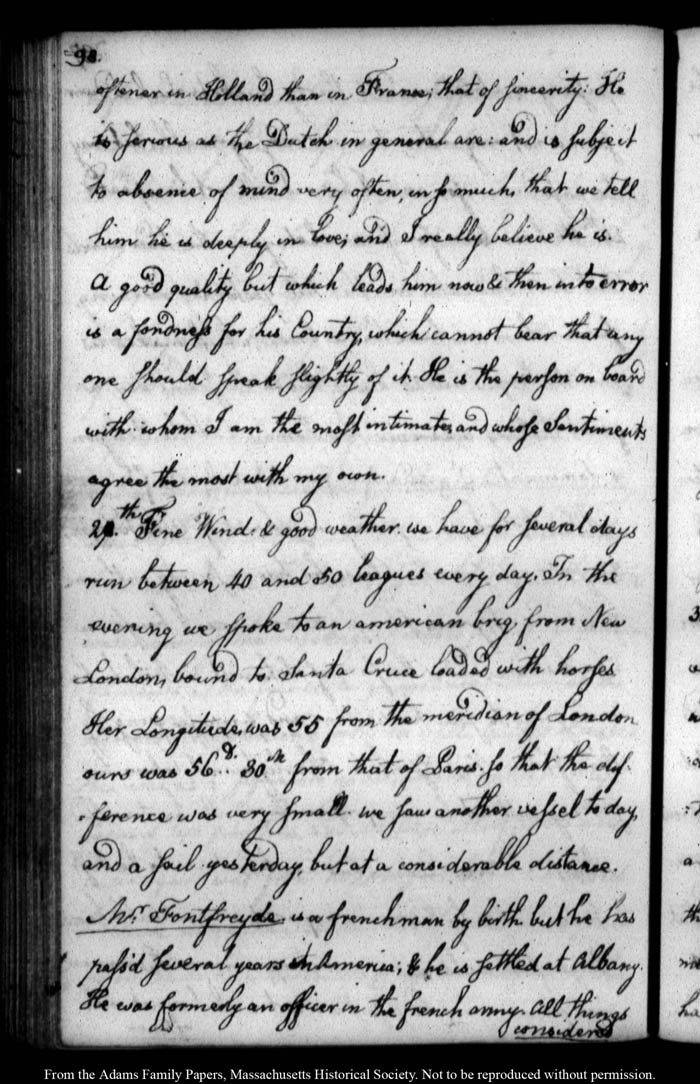 98.
oftener in Holland than in France; that of sincerity: He
is serious as the Dutch in general are: and is subject
to absence of mind very often, in so much, that we tell
him he is deeply in love; and I really believe he is.
A good quality but which leads him now & then into error
is a fondness for his Country, which cannot bear that any
one should speak slightly of it. He is the person on board
with whom I am the most intimate, and whose Sentiments
agree the most with my own.
29.th Fine Wind. & good weather. we have for several days
run between 40 and 50 leagues every day. In the
evening we spoke to an american brig, from New
London, bound to Santa Cruce loaded with horses
Her Longitude, was 55 from the meridian of London
ours was 56.D. 30.M from that of Paris. so that the dif-
-ference was very small. we saw another vessel to day,
and a sail yesterday, but at a considerable distance.
Mr. Fontfreyde. is a frenchman by birth. but he has
pass'd several years in America; & he is settled at Albany.
He was formerly an officer in the french army. All things
considered
From the Adams Family Papers, Massachusetts Historical Society. Not to be reproduced without permission.